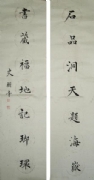 石品洞天題海嶽
書藏福地記琅環